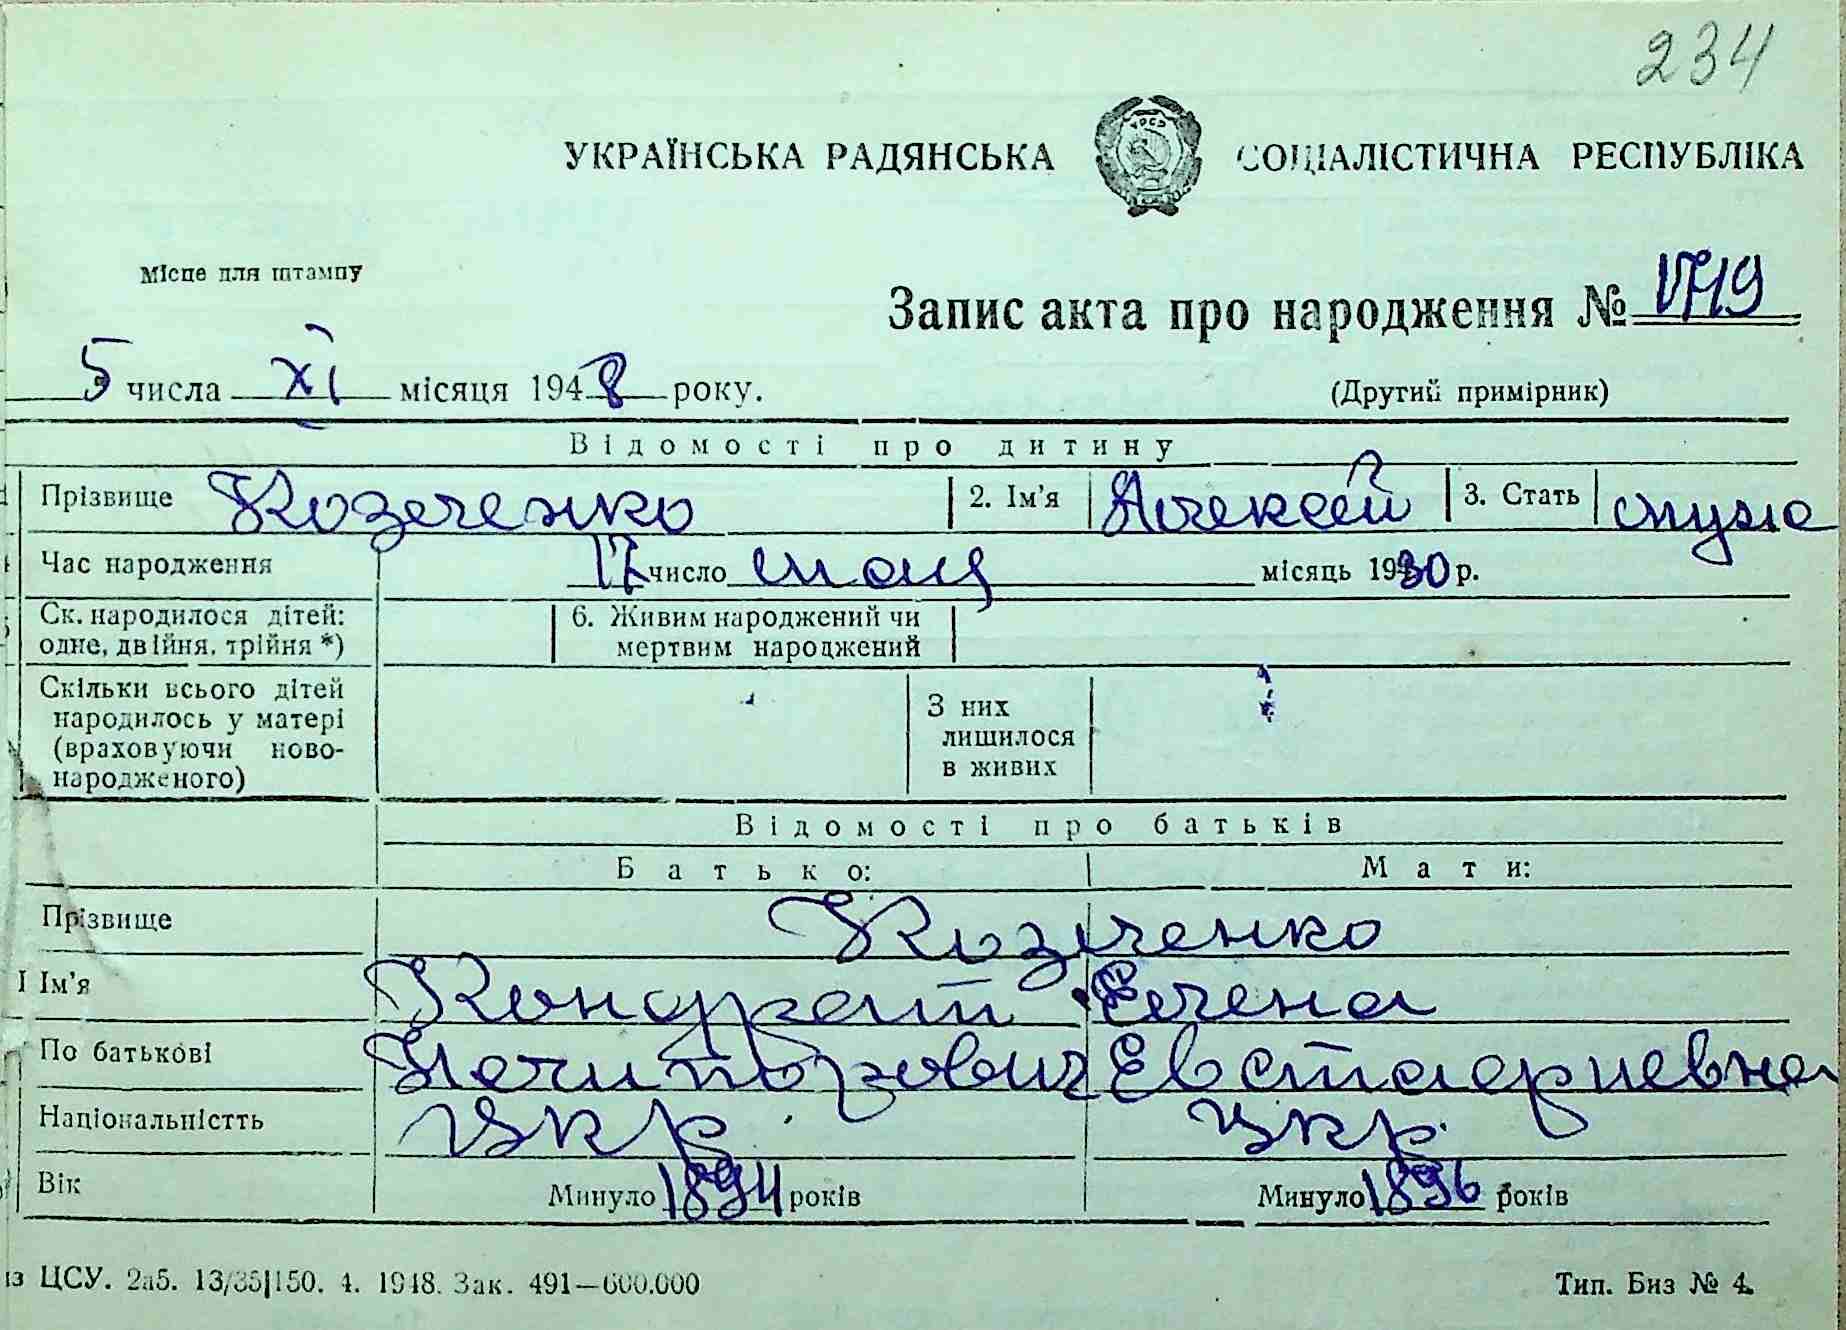 234
УКРАЇНСЬКА РАДЯНСЬКА СОЦІАЛІСТИЧНА РЕСПУБЛІКА
Місце для штампу
Запис акта про народження №
5 числа XI місяця 1948 року.
(Другий примірник)
Відомості про дитину
Прізвище Козеченко 2. Ім'я Алексей 3. Стать
Час народження 17 число мая місяць 1930 р.
Ск. народилося дітей: 6. Живим народжений чи
одне, двійня, трійня *) мертвим народжений
Скільки всього дітей
народилось у матері
(враховуючи ново-
народженого)
З них
лишилося
в живих
Відомості про батьків
Батько: Мати:
Прізвище Козеченко
І Ім'я Кондрат Елена
По батькові Нечипорович Евстафиевна
Національністть Укр. Укр.
Вік Минуло 1894 років Минуло 1896 років
із ЦСУ. 2а5. 13/35|150. 4. 1948. Зак. 491—600.000
Тип. Биз № 4.